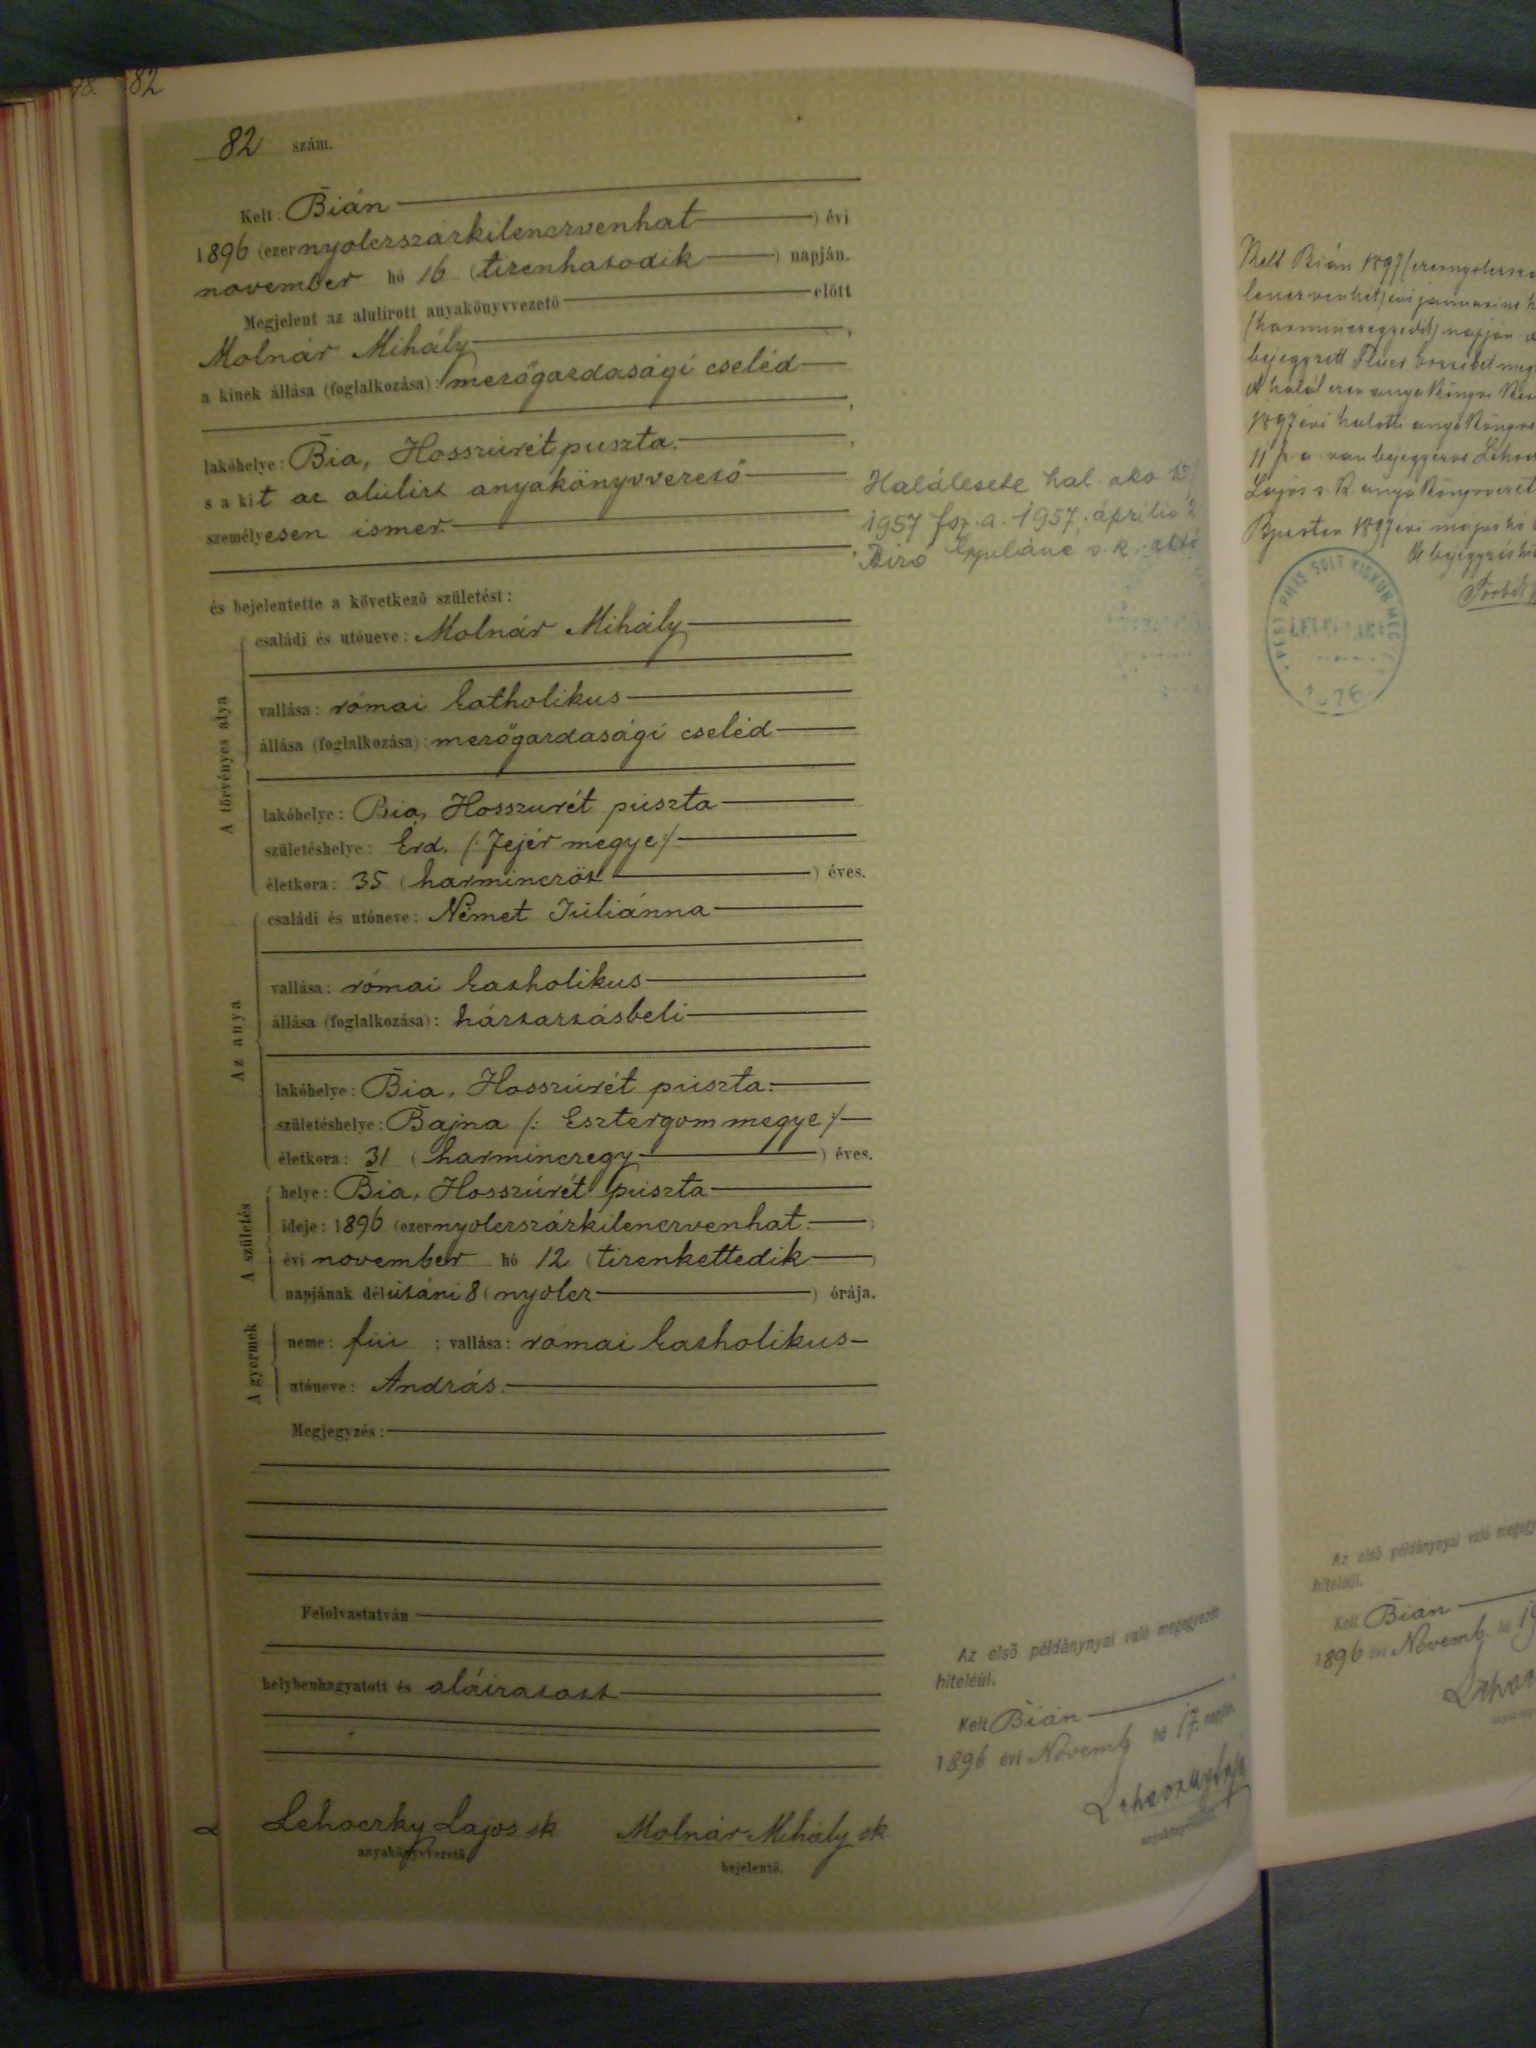 82
82 szám.
Kelt: Bián
1896 (ezernyolczszázkilenczvenhat) évi
november hó 16 (tizenhatodik) napján.
Megjelent az alulirott anyakönyvvezető előtt
Molnár Mihály,
a kinek állása (foglalkozása): mezőgazdasági cseléd,
lakóhelye: Bia, Hosszúrét puszta.,
s a kit az alulirt anyakönyvvezető
személyesen ismer.,
és bejelentette a következő születést:
A törvényes atya
családi és utóneve: Molnár Mihály
vallása: római katholikus
állása (foglalkozása): mezőgazdasági cseléd
lakóhelye: Bia, Hosszurét puszta
születéshelye: Érd. /: Fejér megye :/
életkora: 35 (harminczöt) éves.
Az anya
családi és utóneve: Német Juliánna
vallása: római katholikus
állása (foglalkozása): háztartásbeli
lakóhelye: Bia, Hosszúrét puszta.
születéshelye: Bajna /: Esztergom megye :/
életkora: 31 (harminczegy) éves.
A születés
helye: Bia, Hosszúrét puszta
ideje: 1896 (ezernyolczszázkilenczvenhat)
évi november hó 12 (tizenkettedik)
napjának délutáni 8 (nyolcz) órája.
A gyermek
neme: fiu; vallása: római katholikus
utóneve: András.
Megjegyzés:
Felolvastatván
helybenhagyatott és aláiratott
Lehoczky Lajos sk
anyakönyvvezető.
Molnár Mihály sk
bejelentő.
Halálesete hal. ako 15/
1957 fsz. a. 1957. április 2
Biró s. k.
Az első példánynyal való megegyezés
hiteléül.
Kelt Bián
1896 évi Novemb. hó 17. napján.
Kelt Bián 1897
napján
bejegyzett
1897 évi halotti
11 fz. a. van bejegyezve
Lajos s. k.
PEST PILIS SOLT KISKUN
1876
Az első példánynyal való
hiteléül.
Kelt Bián
1896 évi Novemb. hó